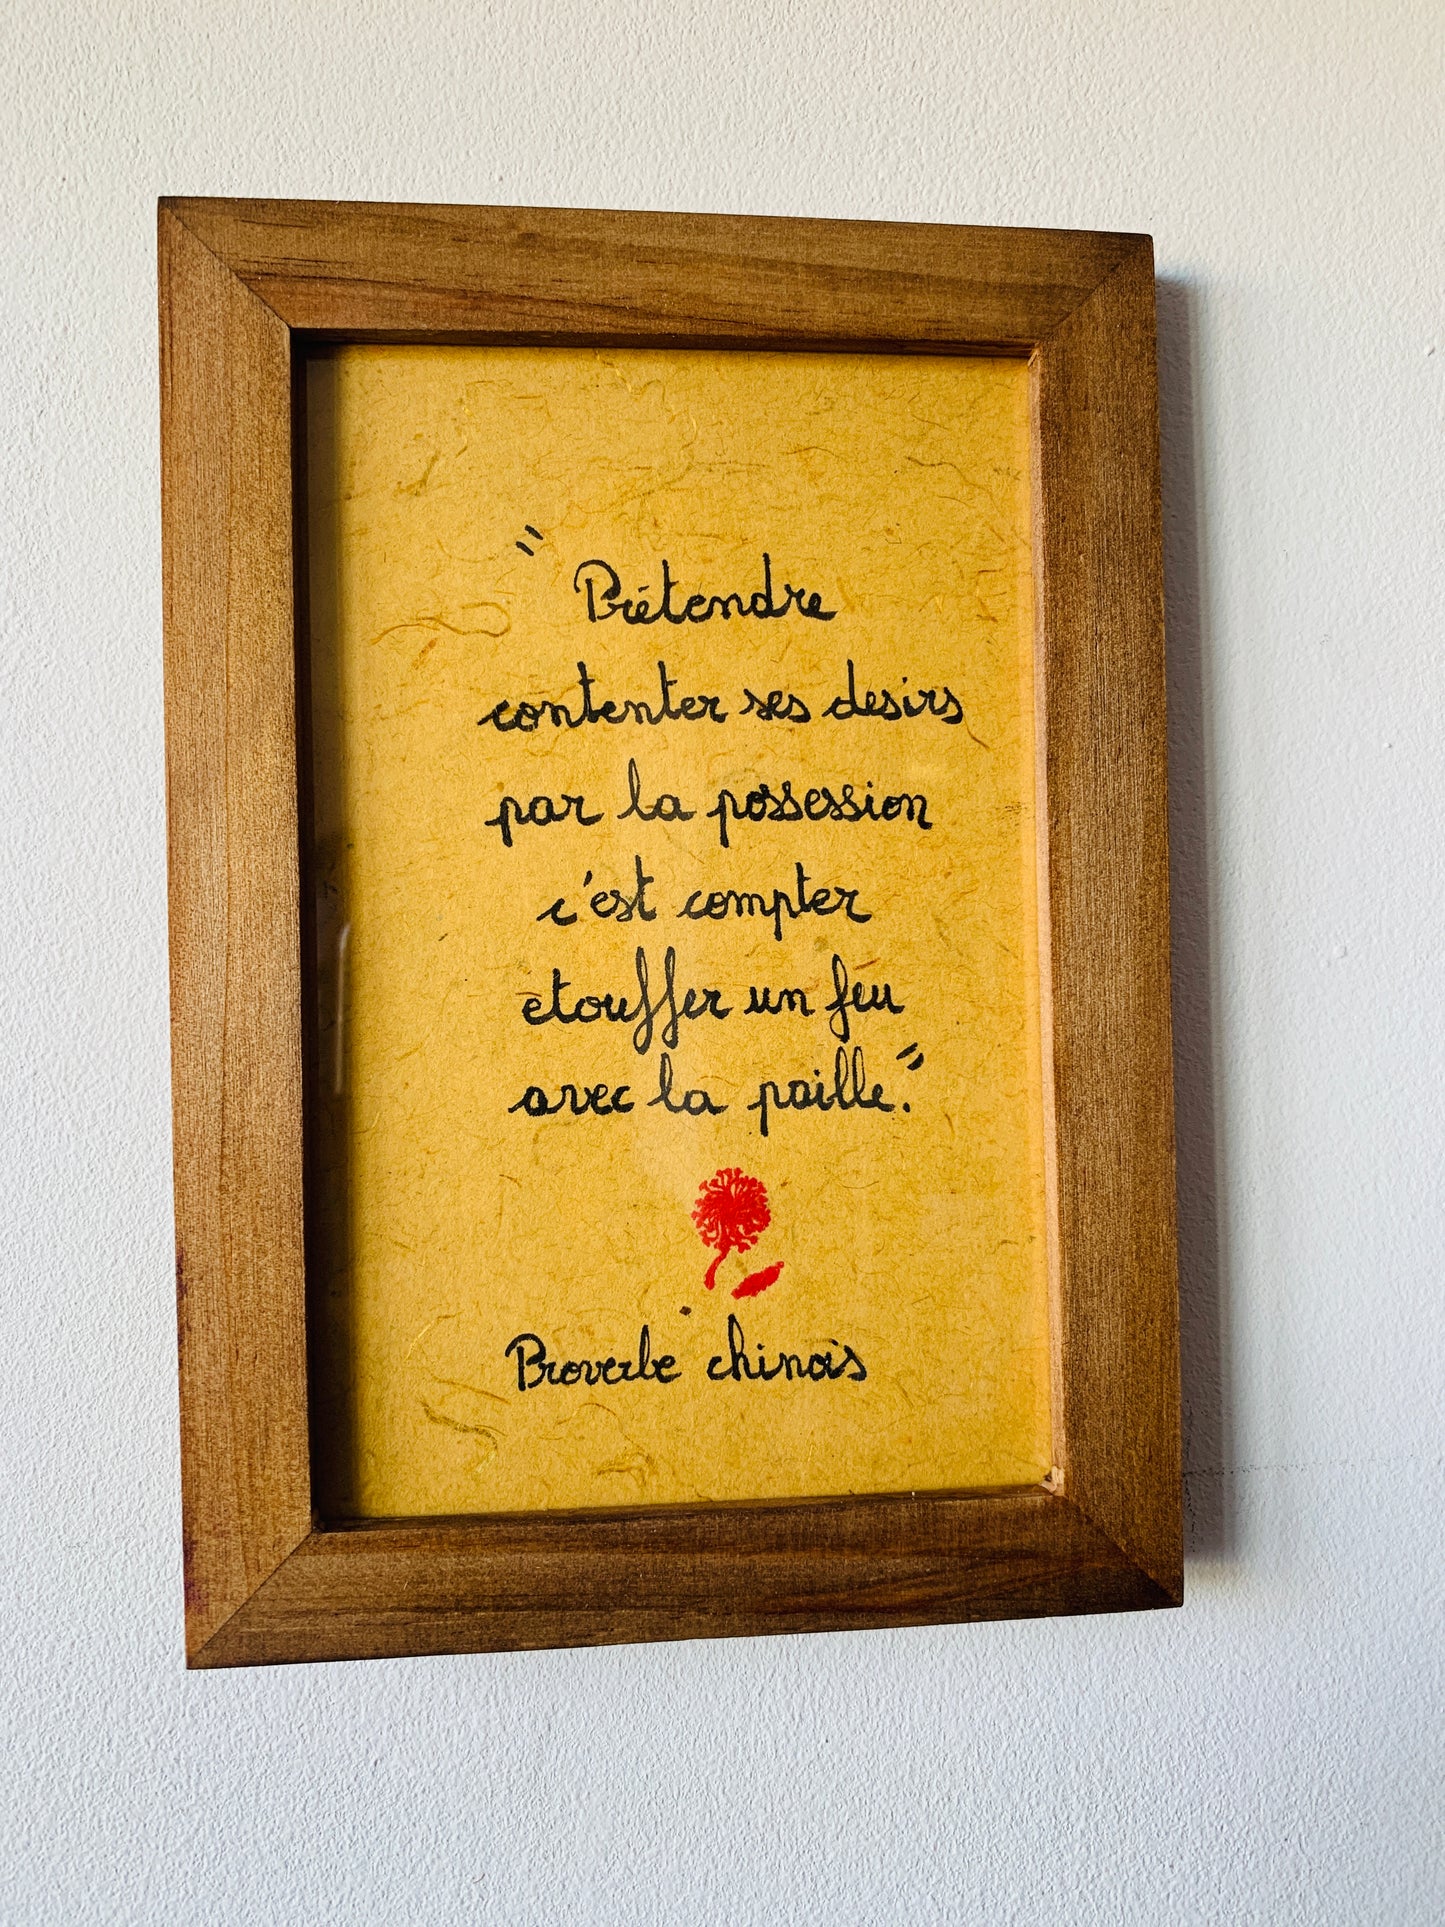 "Prétendre
contenter ses desirs
par la possession
c'est compter
étouffer un feu
avec la paille."
Proverbe chinois